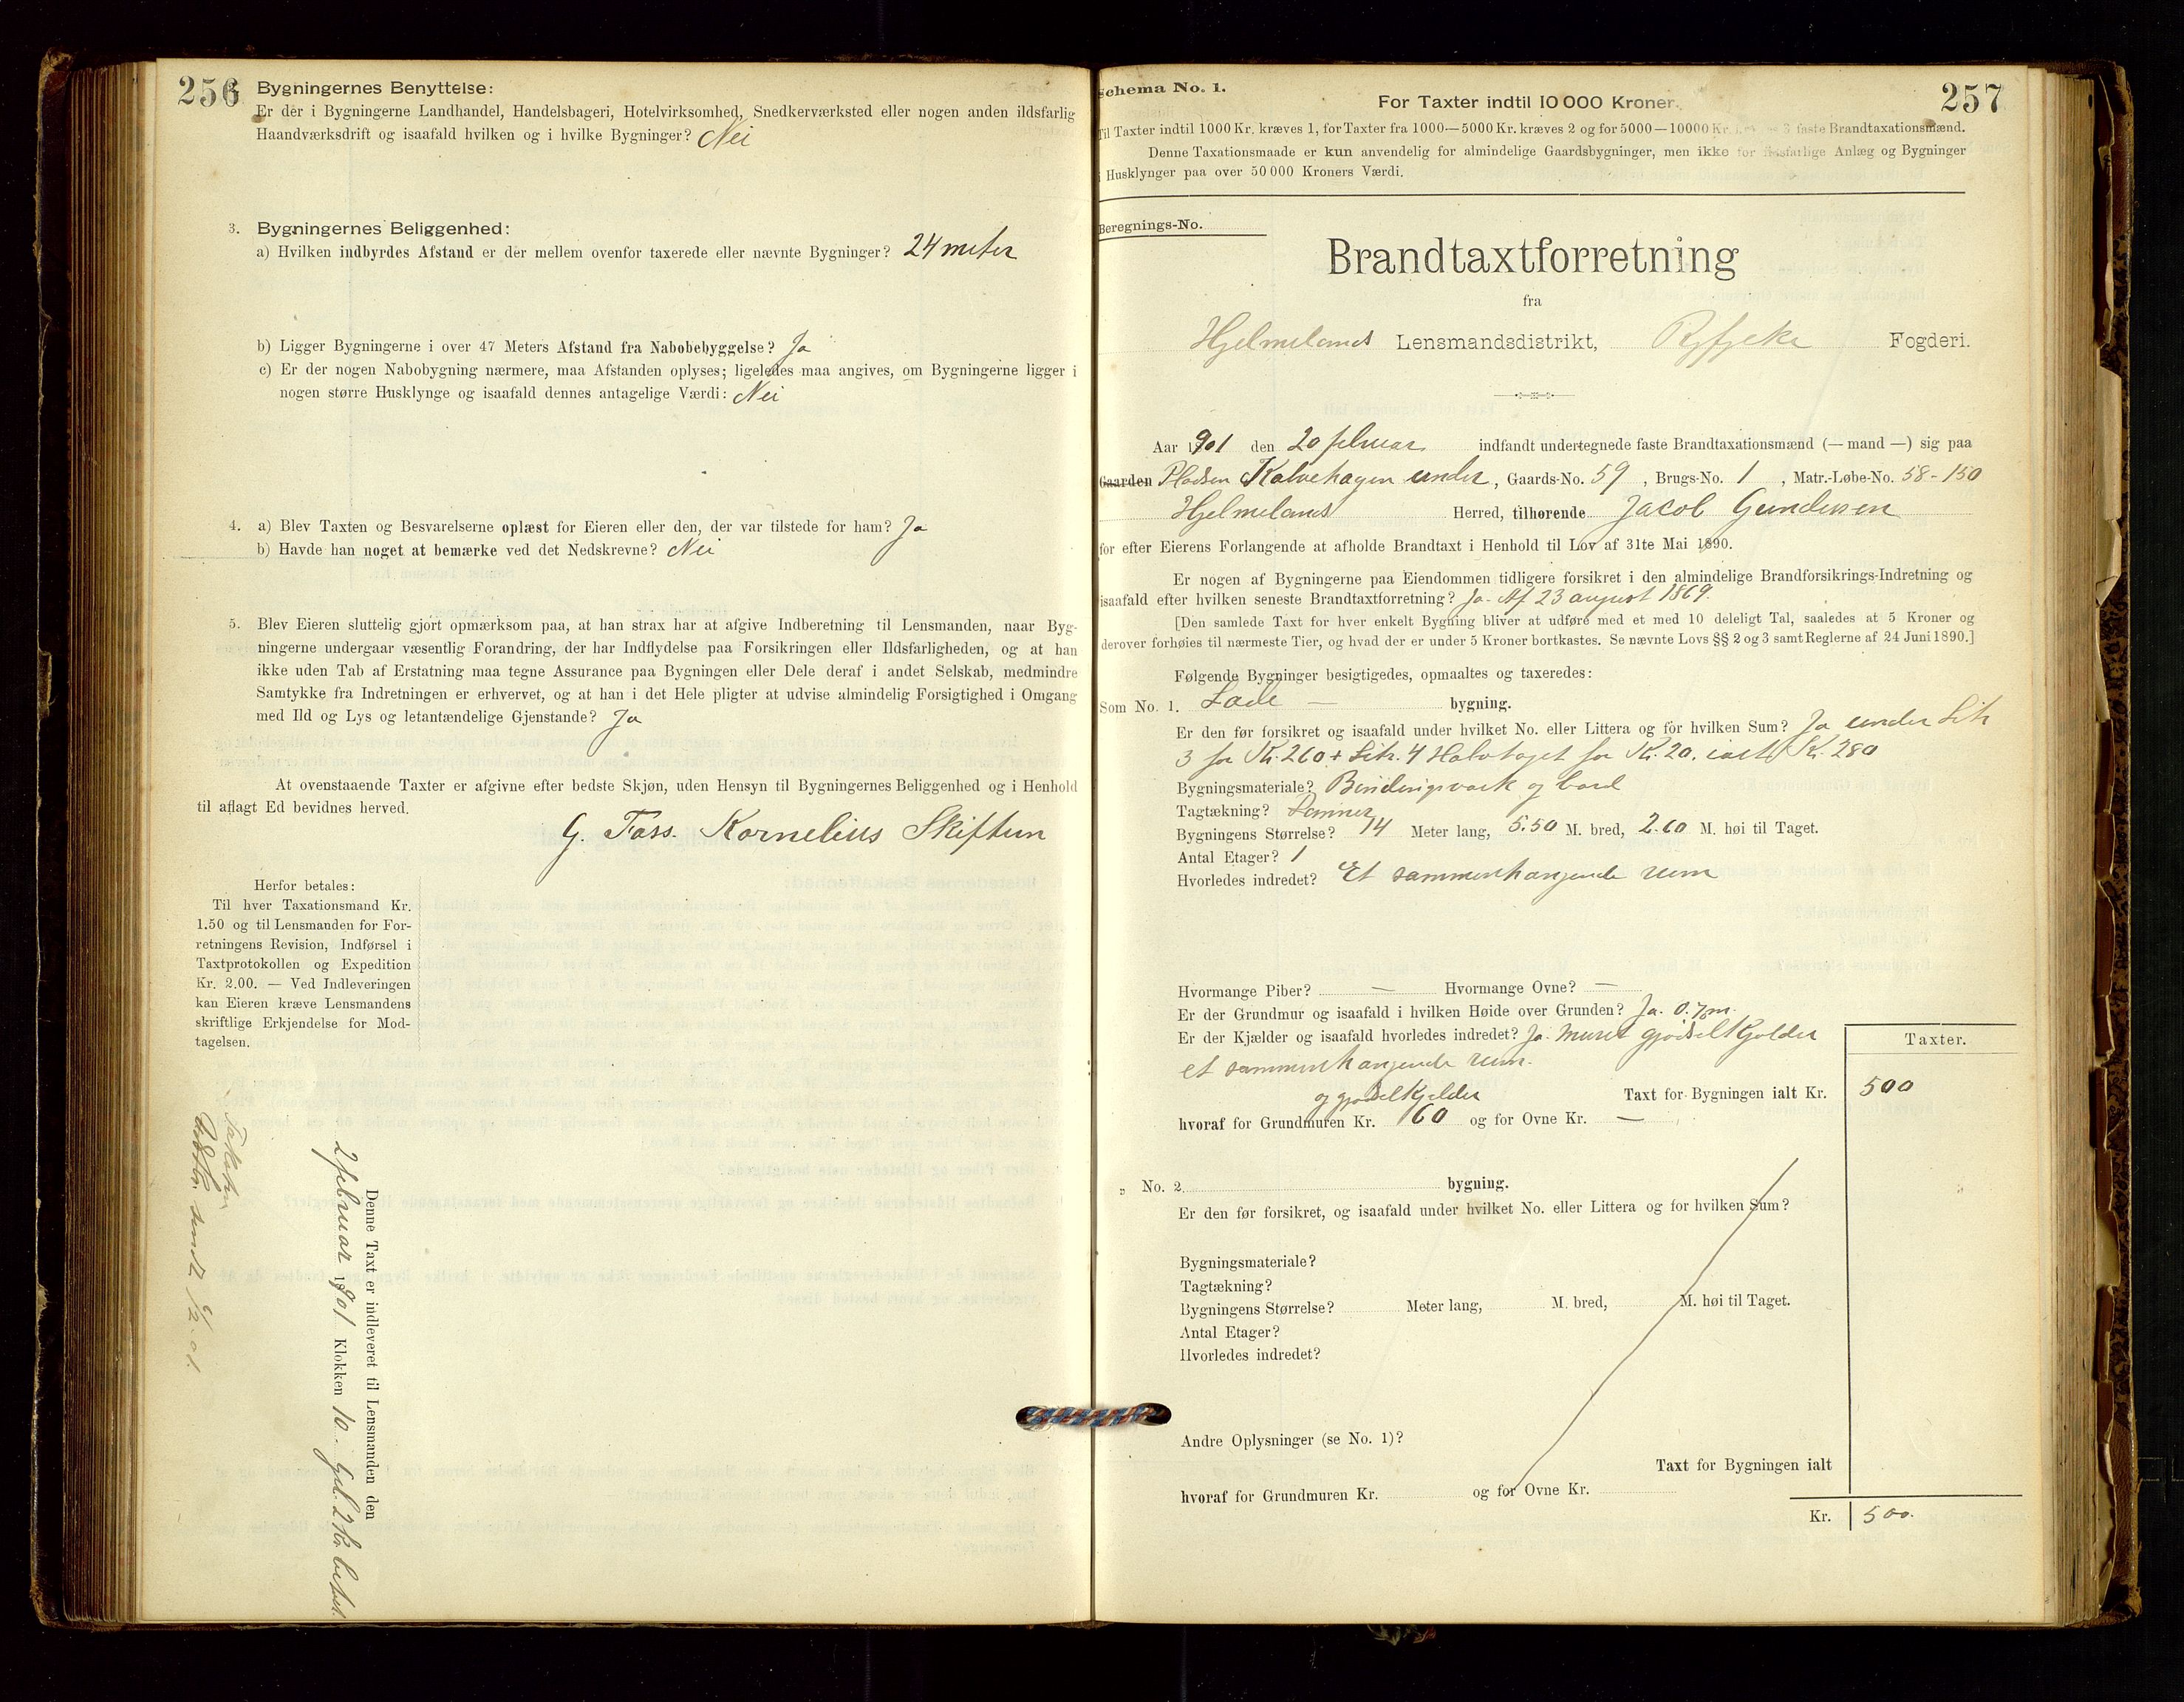 256
Bygningernes Benyttelse:
Er der i Bygningerne Landhandel, Handelsbageri, Hotelvirksomhed, Snedkerværksted eller nogen anden ildsfarlig
Haandværksdrift og isaafald hvilken og i hvilke Bygninger? Nei
3. Bygningernes Beliggenhed:
a) Hvilken indbyrdes Afstand er der mellem ovenfor taxerede eller nævnte Bygninger? 24 meter
b) Ligger Bygningerne i over 47 Meters Afstand fra Nabobebyggelse? Ja
c) Er der nogen Nabobygning nærmere, maa Afstanden oplyses; ligeledes maa angives, om Bygningerne ligger i
nogen større Husklynge og isaafald dennes antagelige Værdi: Nei
4. a) Blev Taxten og Besvarelserne oplæst for Eieren eller den, der var tilstede for ham? Ja
b) Havde han noget at bemærke ved det Nedskrevne? Nei
5. Blev Eieren sluttelig gjort opmærksom paa, at han strax har at afgive Indberetning til Lensmanden, naar Byg-
ningerne undergaar væsentlig Forandring, der har Indflydelse paa Forsikringen eller Ildsfarligheden, og at han
ikke uden Tab af Erstatning maa tegne Assurance paa Bygningen eller Dele deraf i andet Selskab, medmindre
Samtykke fra Indretningen er erhvervet, og at han i det Hele pligter at udvise almindelig Forsigtighed i Omgang
med Ild og Lys og letantændelige Gjenstande? Ja
At ovenstaaende Taxter er afgivne efter bedste Skjøn, uden Hensyn til Bygningernes Beliggenhed og i Henhold
til aflagt Ed bevidnes herved.
G. Foss. Kornelius Skiftun
Herfor betales:
Til hver Taxationsmand Kr.
1.50 og til Lensmanden for For-
retningens Revision, Indførsel i
Taxtprotokollen og Expedition
Kr. 2.00. — Ved Indleveringen
kan Eieren kræve Lensmandens
skriftlige Erkjendelse for Mod-
tagelsen.
Denne Taxt er indleveret til Lensmanden den
2 februar 1901 Klokken 10 - 2 Kr. betalt.
sendt
257
Schema No. 1.
For Taxter indtil 10 000 Kroner.
Til Taxter indtil 1000 Kr. kræves 1, for Taxter fra 1000—5000 Kr. kræves 2 og for 5000—10000 Kr. kræves 3 faste Brandtaxationsmænd.
Denne Taxationsmaade er kun anvendelig for almindelige Gaardsbygninger, men ikke for ildsfarlige Anlæg og Bygninger
i Husklynger paa over 50 000 Kroners Værdi.
Beregnings-No.
Brandtaxtforretning
fra
Hjelmelands Lensmandsdistrikt, Ryfylke Fogderi.
Aar 1901 den 20 februar indfandt undertegnede faste Brandtaxationsmænd (— mand —) sig paa
Gaarden Pladsen Kalvehagen under, Gaards-No. 59, Brugs-No. 1, Matr.-Løbe-No. 58-150
Hjelmelands Herred, tilhørende Jacob Gundersen
for efter Eierens Forlangende at afholde Brandtaxt i Henhold til Lov af 31te Mai 1890.
Er nogen af Bygningerne paa Eiendommen tidligere forsikret i den almindelige Brandforsikrings-Indretning og
isaafald efter hvilken seneste Brandtaxtforretning? Ja. Af 23 august 1869.
[Den samlede Taxt for hver enkelt Bygning bliver at udføre med et med 10 deleligt Tal, saaledes at 5 Kroner og
derover forhøies til nærmeste Tier, og hvad der er under 5 Kroner bortkastes. Se nævnte Lovs §§ 2 og 3 samt Reglerne af 24 Juni 1890.]
Følgende Bygninger besigtigedes, opmaaltes og taxeredes:
Som No. 1. Lade — bygning.
Er den før forsikret og isaafald under hvilket No. eller Littera og for hvilken Sum? Ja under Litr
3 for Kr. 260 + Litr. 4 Halvtaget for Kr. 20. ialt K. 280
Bygningsmateriale? Bindingværk og bord
Tagtækning?
Bygningens Størrelse? 14 Meter lang, 5.50 M. bred, 2.60 M. høi til Taget.
Antal Etager? 1
Hvorledes indredet? Et sammenhængende rum
Hvormange Piber? — Hvormange Ovne? —
Er der Grundmur og isaafald i hvilken Høide over Grunden? Ja. 0.7 m.
Er der Kjælder og isaafald hvorledes indredet? Ja. muret gjødselkjelder
et sammenhængende rum.
Taxter.
Taxt for Bygningen ialt Kr. 500
og gjødselkjelder
hvoraf for Grundmuren Kr. 60 og for Ovne Kr. —
„ No. 2. bygning.
Er den før forsikret, og isaafald under hvilket No. eller Littera og for hvilken Sum?
Bygningsmateriale?
Tagtækning?
Bygningens Størrelse? Meter lang, M. bred, M. høi til Taget.
Antal Etager?
Hvorledes indredet?
Andre Oplysninger (se No. 1)?
Taxt for Bygningen ialt
hvoraf for Grundmuren Kr. og for Ovne Kr.
Kr. 500.